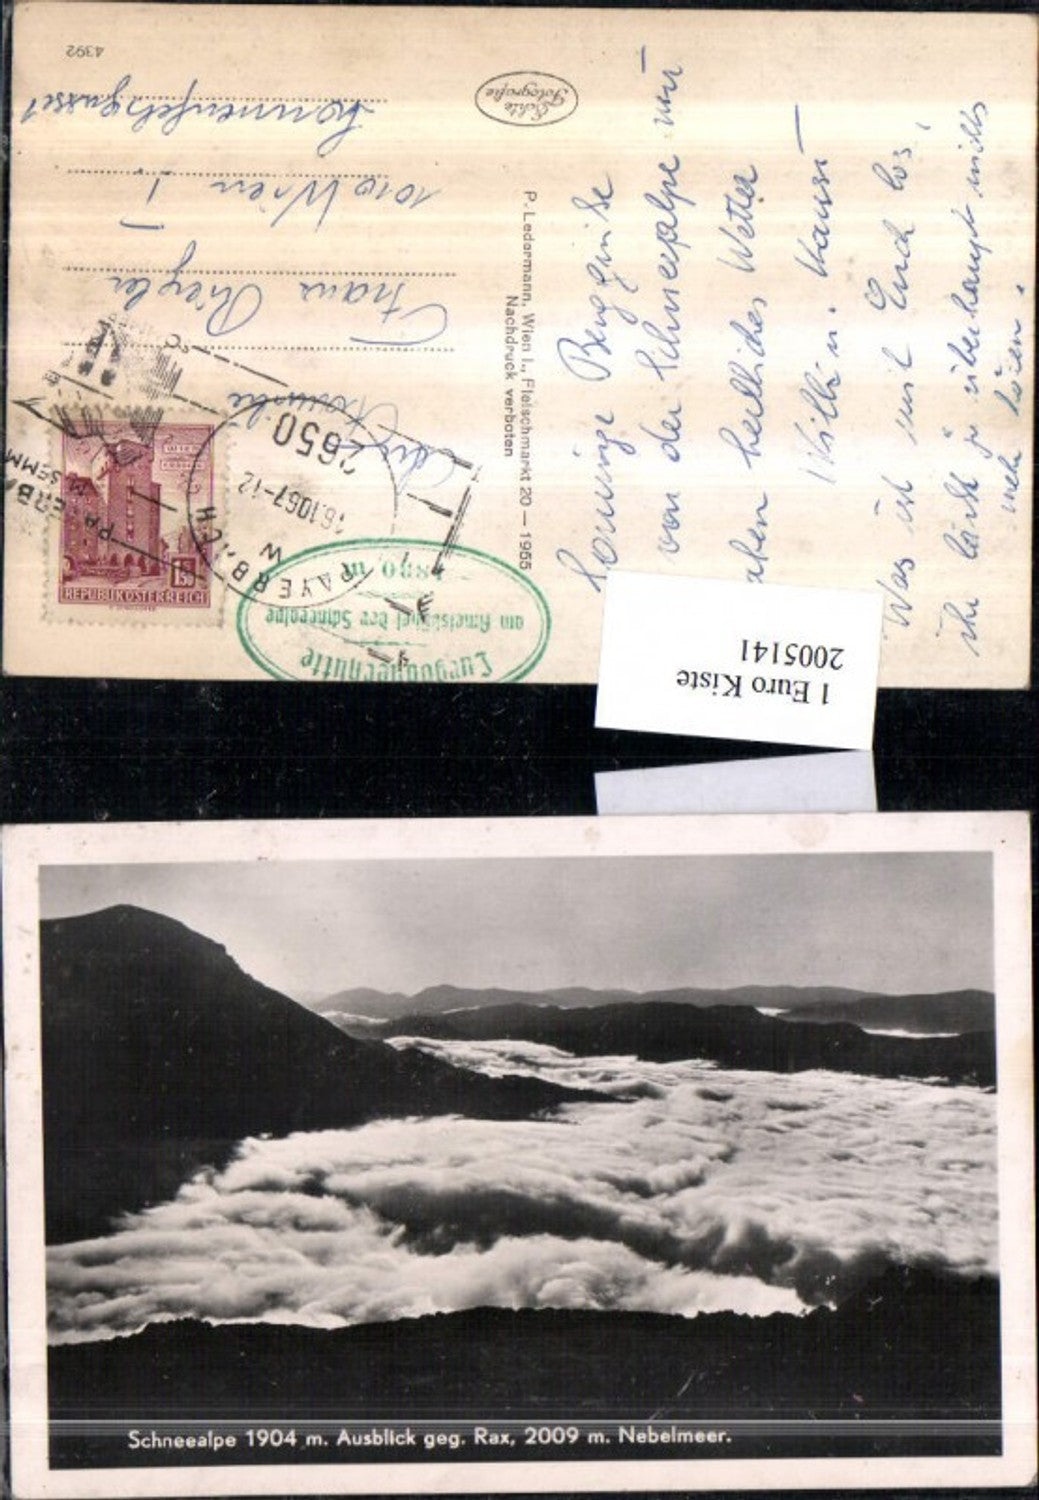 4392
Echte
Fotografie
P. Ledermann, Wien I., Fleischmarkt 20 — 1955
Nachdruck verboten
Familie
Franz
1010 Wien I.
Sonnenfelsgasse 1
REPUBLIK ÖSTERREICH
2650
16.10.67-12
PAYERBACH
am Ameisbühel der Schneealpe
Sonnige Berggrüße
von der Schneealpe wir
haben herrliches Wetter
Willi u. Hansi
Was ist mit Euch los,
ihr laßt ja überhaupt nichts
mehr hören.
1 Euro Kiste
2005141
Schneealpe 1904 m. Ausblick geg. Rax, 2009 m. Nebelmeer.